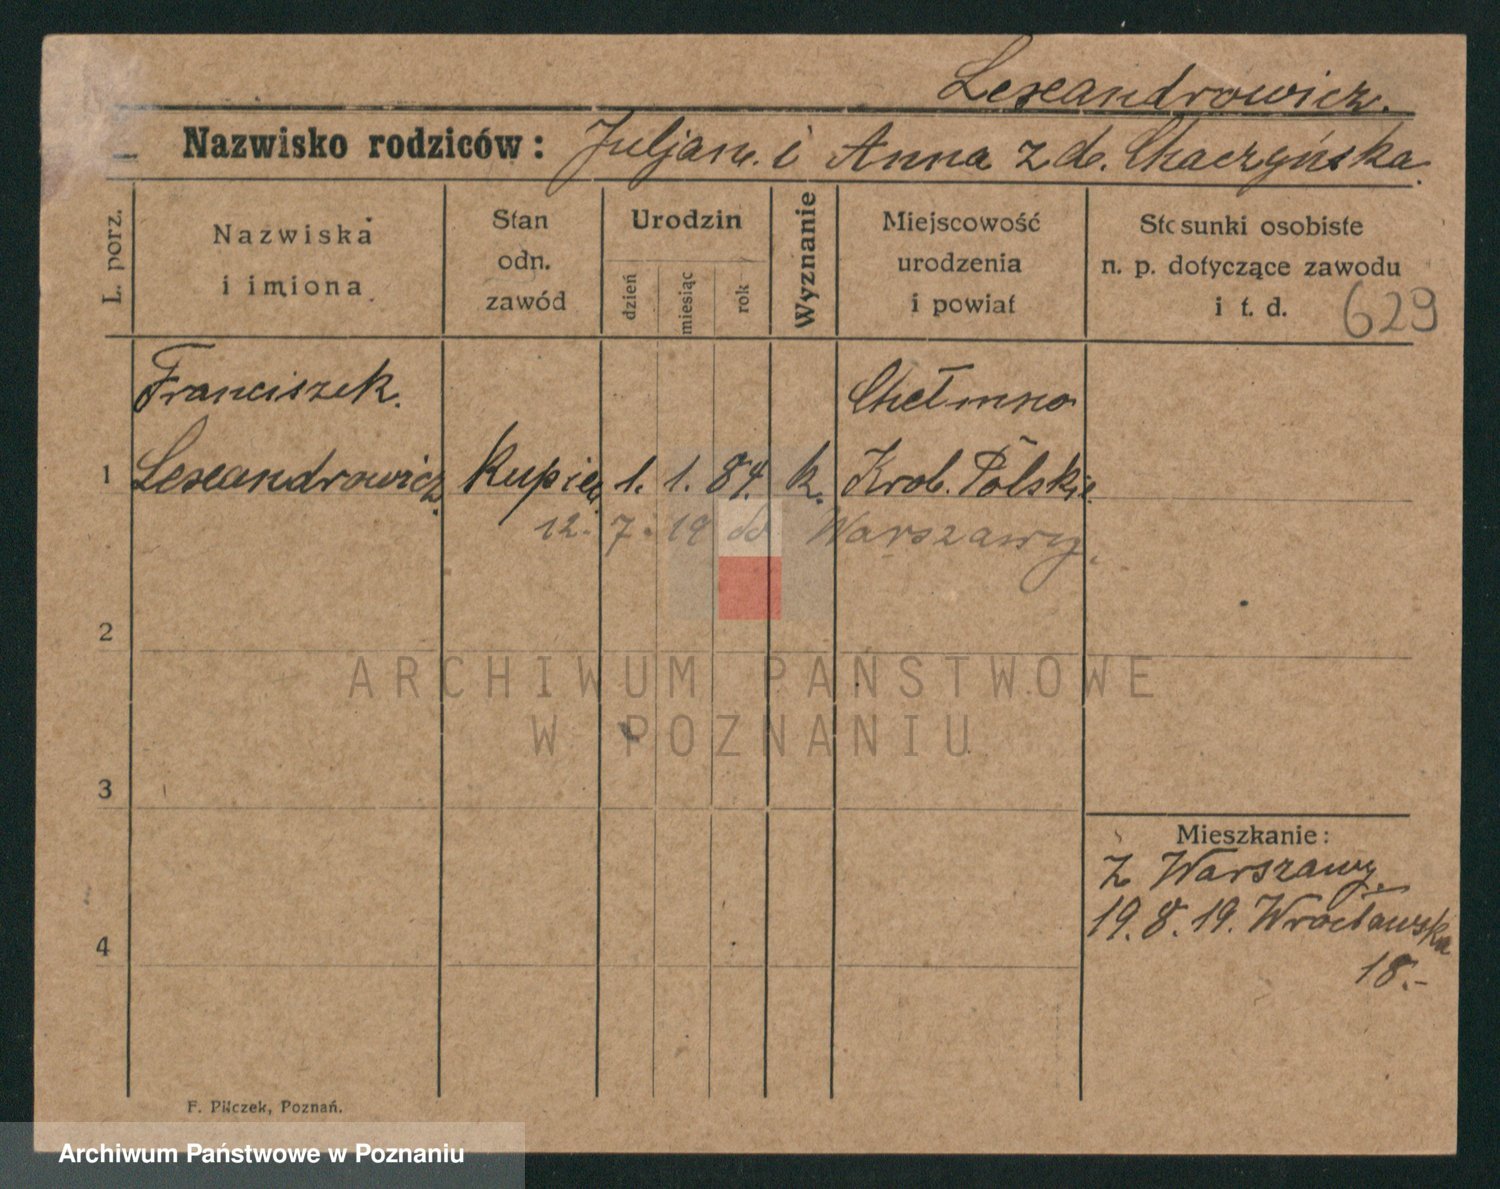 Lexeandrowicz.
Nazwisko rodziców: Juljan. i Anna z d. Chaczyńska.
L. porz.
Nazwiska
i imiona
Stan
odn.
zawód
Urodzin
dzień
miesiąc
rok
Wyznanie
Miejscowość
urodzenia
i powiat
Stosunki osobiste
n. p. dotyczące zawodu
i t. d.
629
Franciszek.
Chełmno
1 Lexeandrowicz. Kupiec. 1. 1. 84. k. Krol. Polskie.
12. 7. 19 do Warszawy.
2
3
4
ARCHIWUM PAŃSTWOWE
W POZNANIU
Mieszkanie:
z Warszawy.
19.8.19. Wrocławska
18.-
F. Pilczek, Poznań.
Archiwum Państwowe w Poznaniu